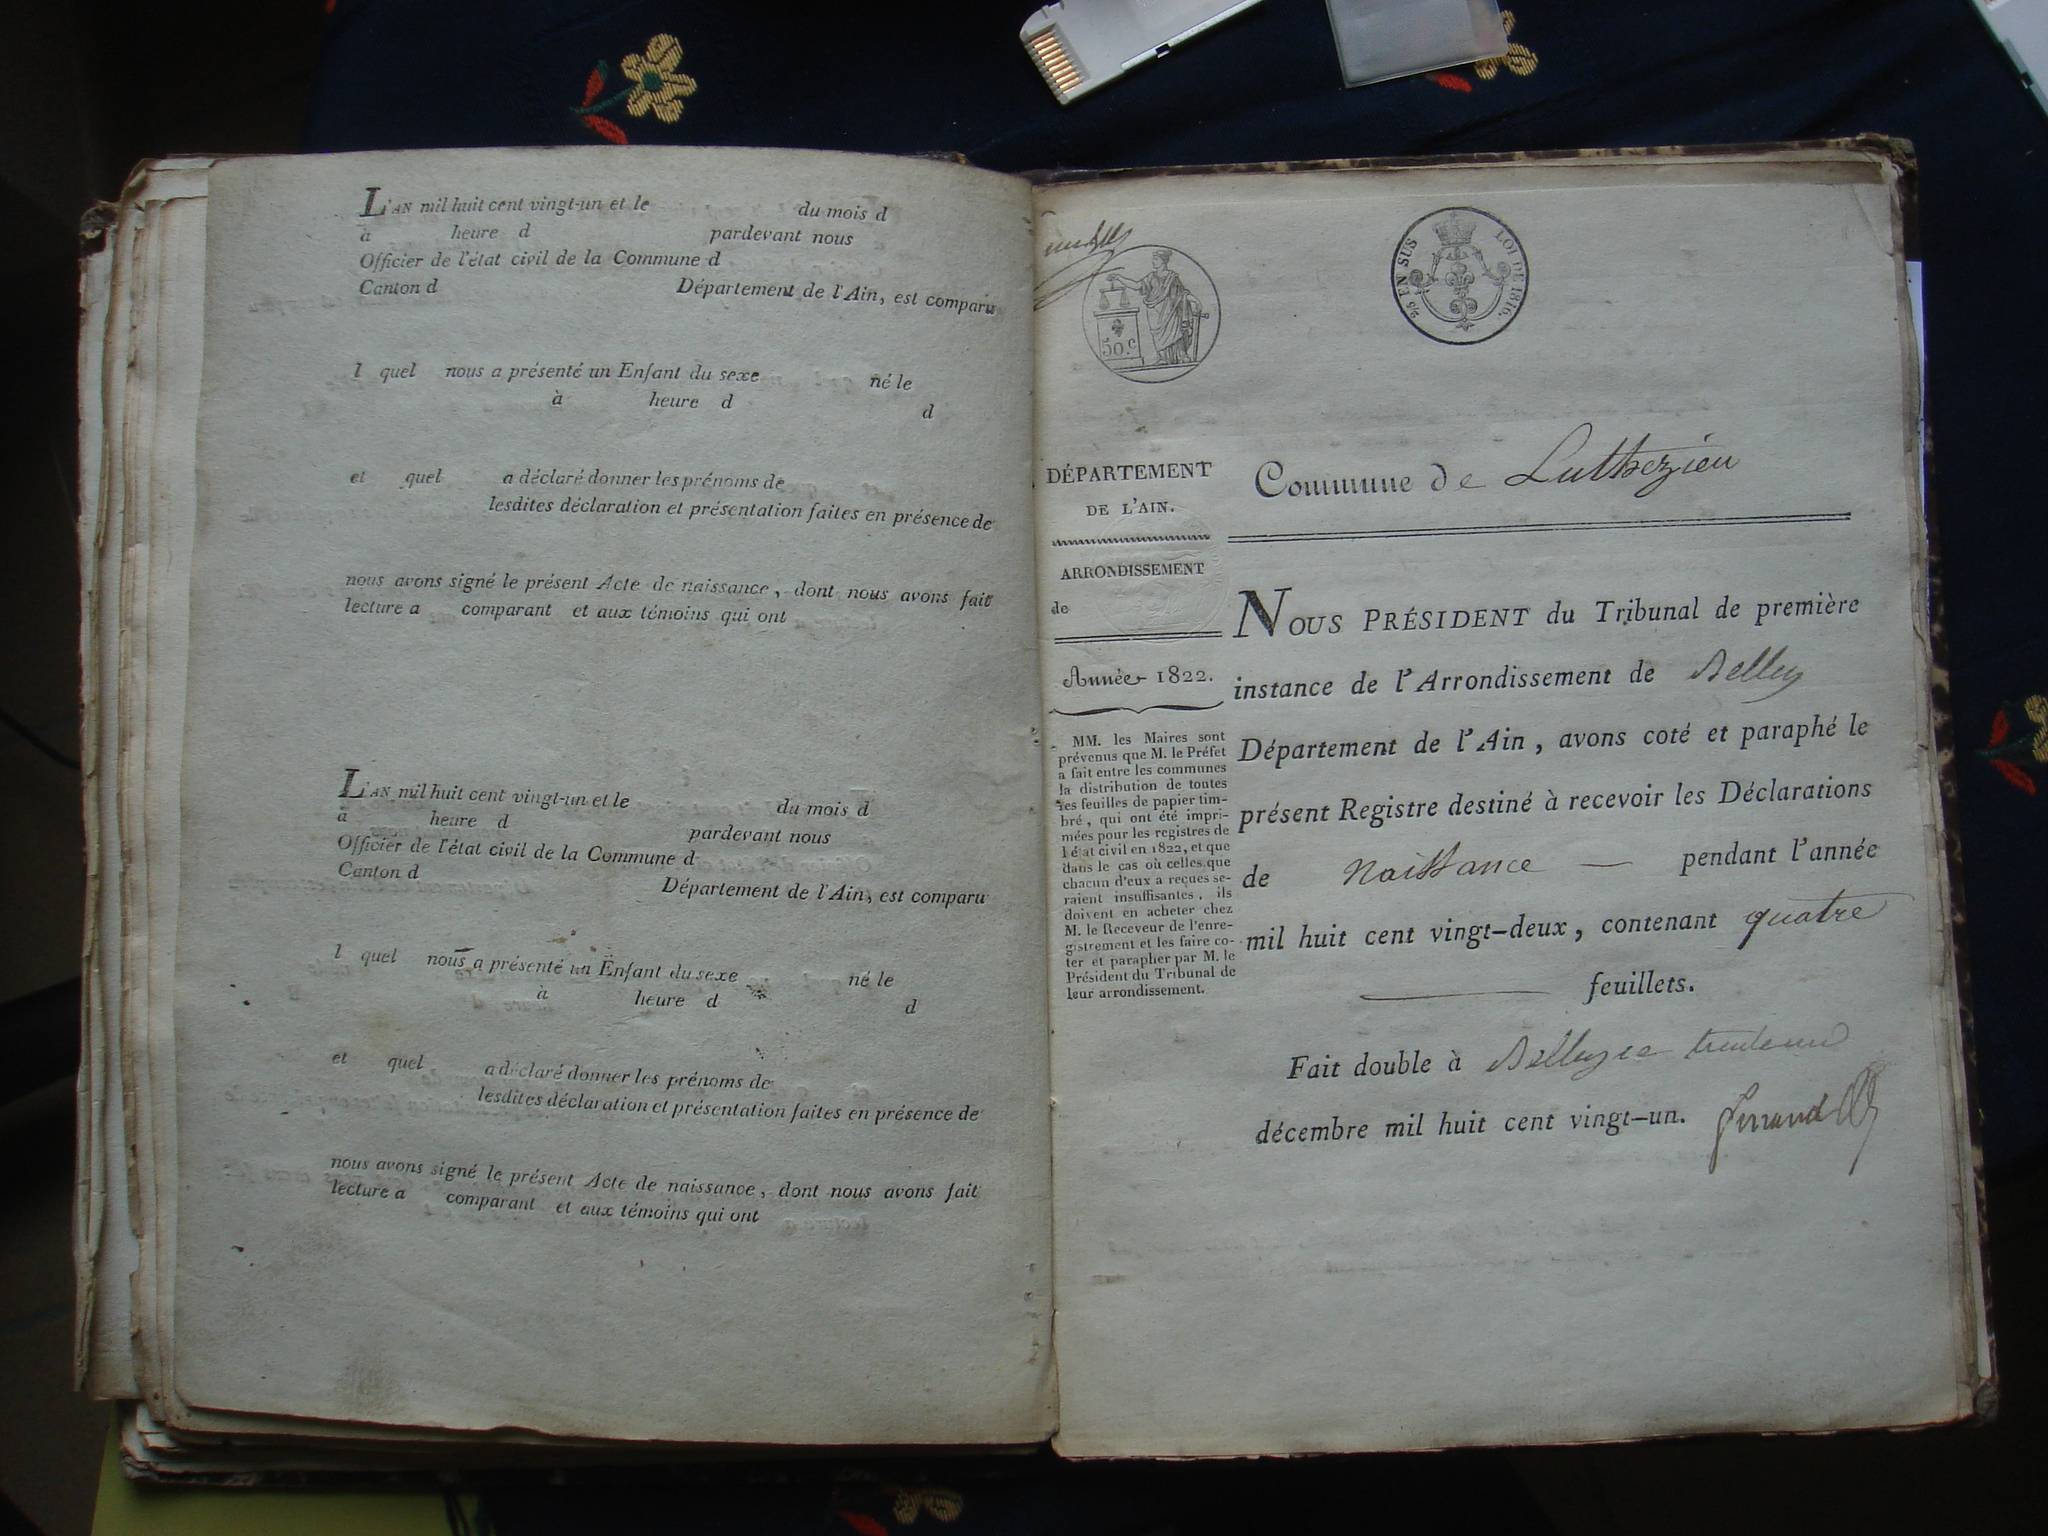 L'AN mil huit cent vingt-un et le du mois d
à heure d pardevant nous
Officier de l'état civil de la Commune d
Canton d Département de l'Ain, est comparu
l quel nous a présenté un Enfant du sexe né le
à heure d d
et quel a déclaré donner les prénoms de
lesdites déclaration et présentation faites en présence de
nous avons signé le présent Acte de naissance, dont nous avons fait
lecture a comparant et aux témoins qui ont
L'AN mil huit cent vingt-un et le du mois d
à heure d pardevant nous
Officier de l'état civil de la Commune d
Canton d Département de l'Ain, est comparu
l quel nous a présenté un Enfant du sexe né le
à heure d d
et quel a déclaré donner les prénoms de
lesdites déclaration et présentation faites en présence de
nous avons signé le présent Acte de naissance, dont nous avons fait
lecture a comparant et aux témoins qui ont
50.c
EN SUS LOI DE 1816.
DÉPARTEMENT
DE L'AIN.
ARRONDISSEMENT
de
Année 1822.
MM. les Maires sont
prévenus que M. le Préfet
a fait entre les communes
la distribution de toutes
les feuilles de papier tim-
bré, qui ont été impri-
mées pour les registres de
l'état civil en 1822, et que
dans le cas où celles que
chacun d'eux a reçues se-
raient insuffisantes, ils
doivent en acheter chez
M. le Receveur de l'enre-
gistrement et les faire co-
ter et parapher par M. le
Président du Tribunal de
leur arrondissement.
Commune de Luthezieu
NOUS PRÉSIDENT du Tribunal de première
instance de l'Arrondissement de Belley
Département de l'Ain, avons coté et paraphé le
présent Registre destiné à recevoir les Déclarations
de Naissance — pendant l'année
mil huit cent vingt-deux, contenant quatre
feuillets.
Fait double à Belley ce trente un
décembre mil huit cent vingt-un.